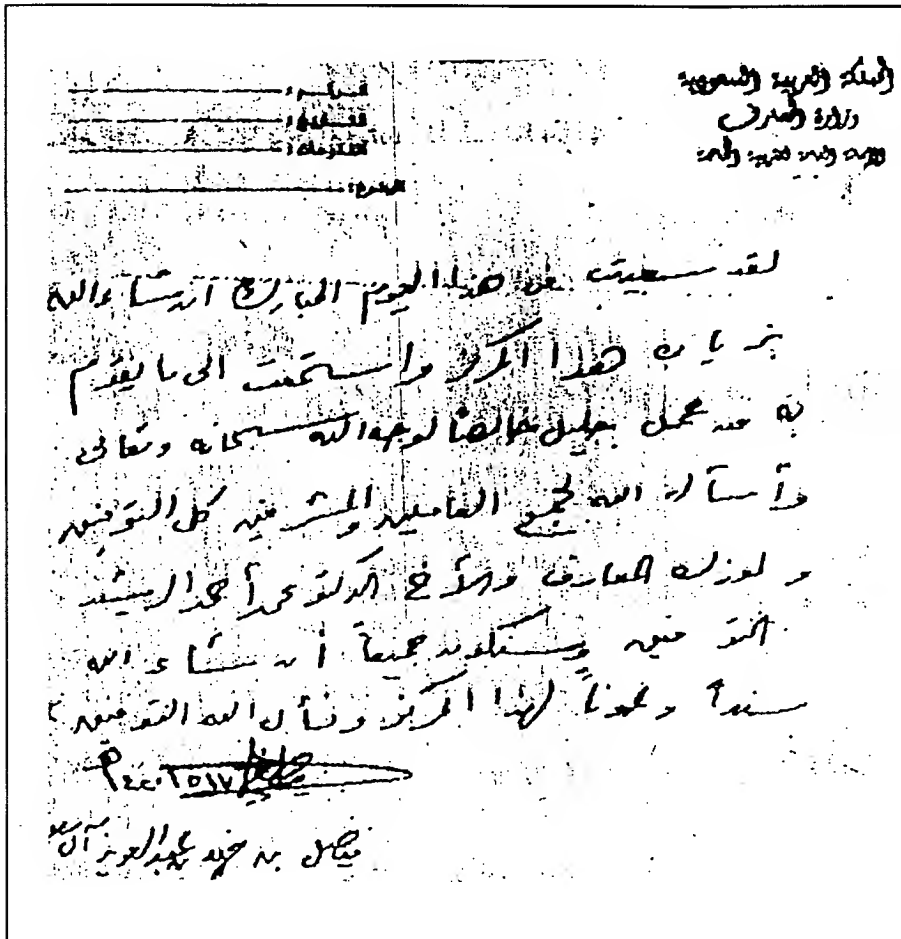 المملكة العربية السعودية
وزارة المعارف
الأمانة العامة للتربية الخاصة
الرقم :
التاريخ :
المشفوعات :
الموضوع :
لقد سعيت في هذا اليوم المبارك ان شاء الله
بزيارة هذا المركز واستمعت الى ما يقوم
به من عمل جليل خالصاً لوجه الله سبحانه وتعالى
وأسأل الله لجميع العاملين والمشرفين كل التوفيق
ولوزارة المعارف وللأخ الدكتور محمد أحمد الرشيد
التوفيق وسنكون جميعاً أن شاء الله
سنداً وعوناً لهذا المركز ونسأل الله التوفيق
فيصل بن فهد بن عبدالعزيز آل سعود